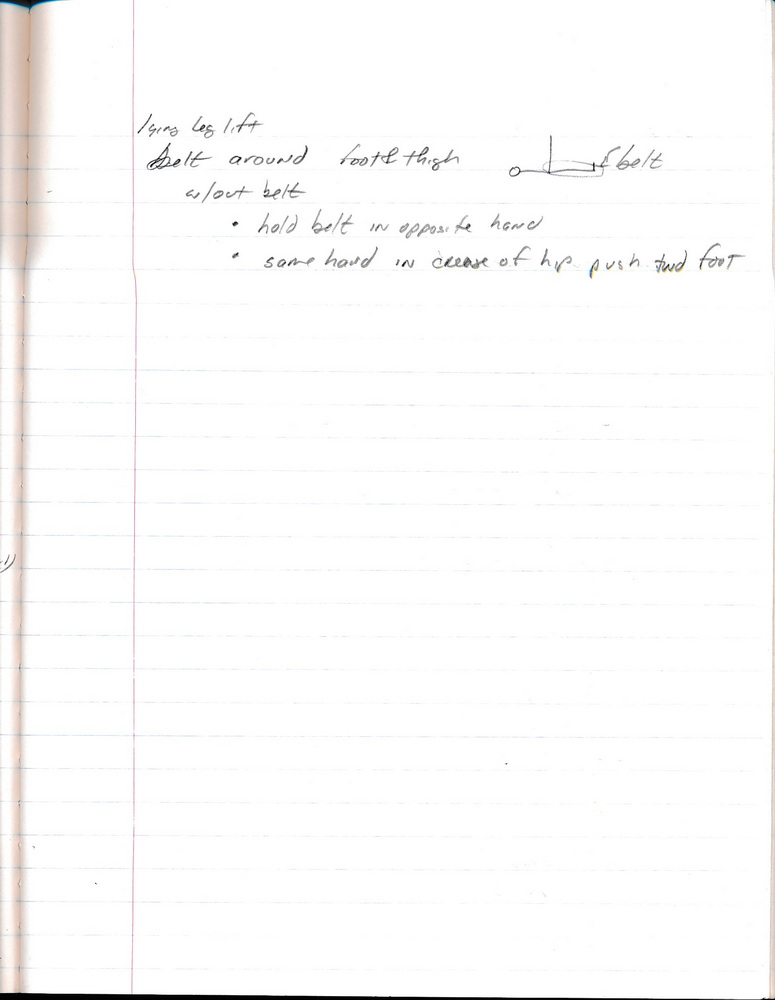 lying leg lift
belt around foot & thigh
belt
w/out belt
• hold belt in opposite hand
• same hand in crease of hip push twd foot